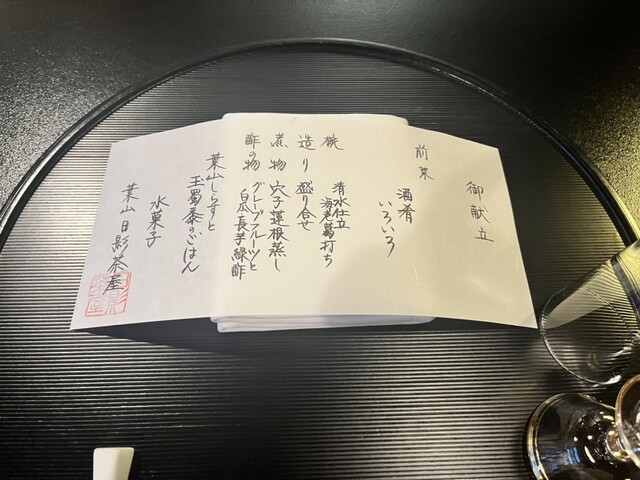 御献立
前菜
酒肴
いろいろ
椀
清水仕立
海老葛打ち
造り 盛り合せ
煮物 穴子蓮根蒸し
酢の物 グレープフルーツと
白瓜長芋緑酢
葉山しらすと
玉蜀黍のごはん
水菓子
葉山 日影茶屋